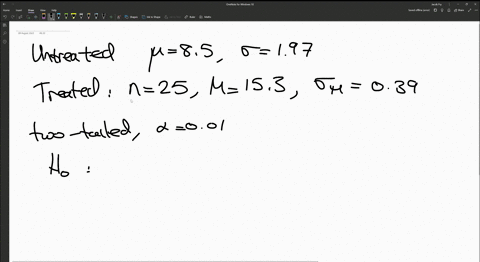 Untreated μ=8.5, σ=1.97
Treated: n=25, M=15.3, σ_M = 0.39
two-tailed, α=0.01
H₀ :